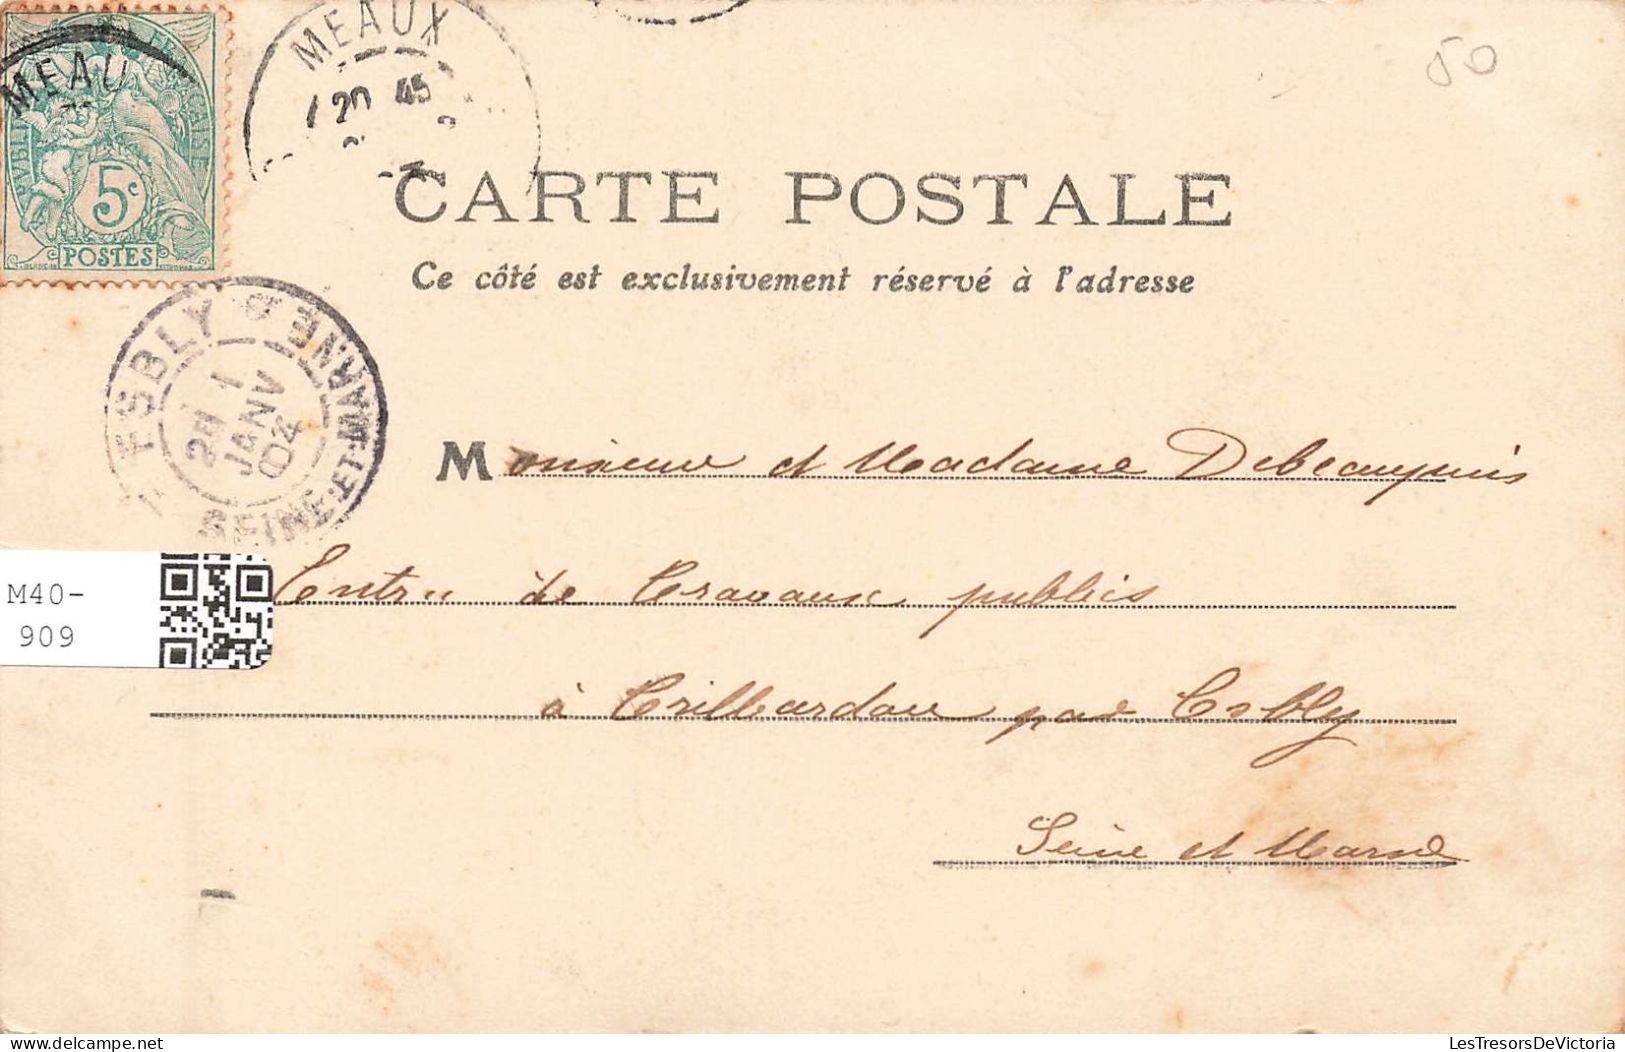 RÉPUBLIQUE FRANÇAISE
MEAU
5c
POSTES
MEAUX
20 45
50
CARTE POSTALE
Ce côté est exclusivement réservé à l'adresse
ESBLY
SEINE-ET-MARNE
1
JANV
04
Monsieur et Madame Debeaupuis
Entr. de Travaux publics
à Trilbardou par Esbly
Seine et Marne
M40-
909
LesTresorsDeVictoria